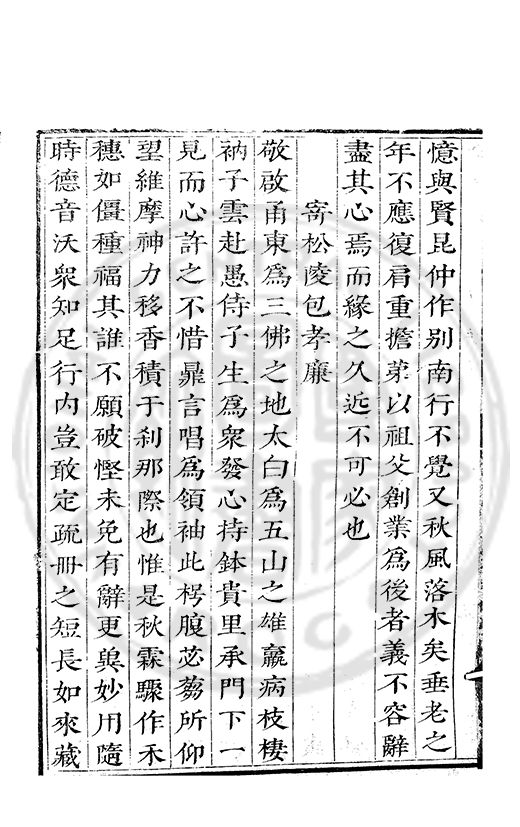 憶與賢昆仲作别南行不覺又秋風落木矣垂老之
年不應復肩重擔第以祖父創業爲後者義不容辭
盡其心焉而緣之久近不可必也
寄松陵包孝廉
敬啟甬東爲三佛之地太白爲五山之雄羸病枝棲
衲子雲赴愚侍子生爲衆發心持鉢貴里承門下一
見而心許之不惜鼎言唱爲領袖此枵腹苾蒭所仰
望維摩神力移香積于刹那際也惟是秋霖驟作禾
穗如僵種福其誰不願破慳未免有辭更與妙用隨
時德音沃衆知足行内豈敢定疏冊之短長如來藏